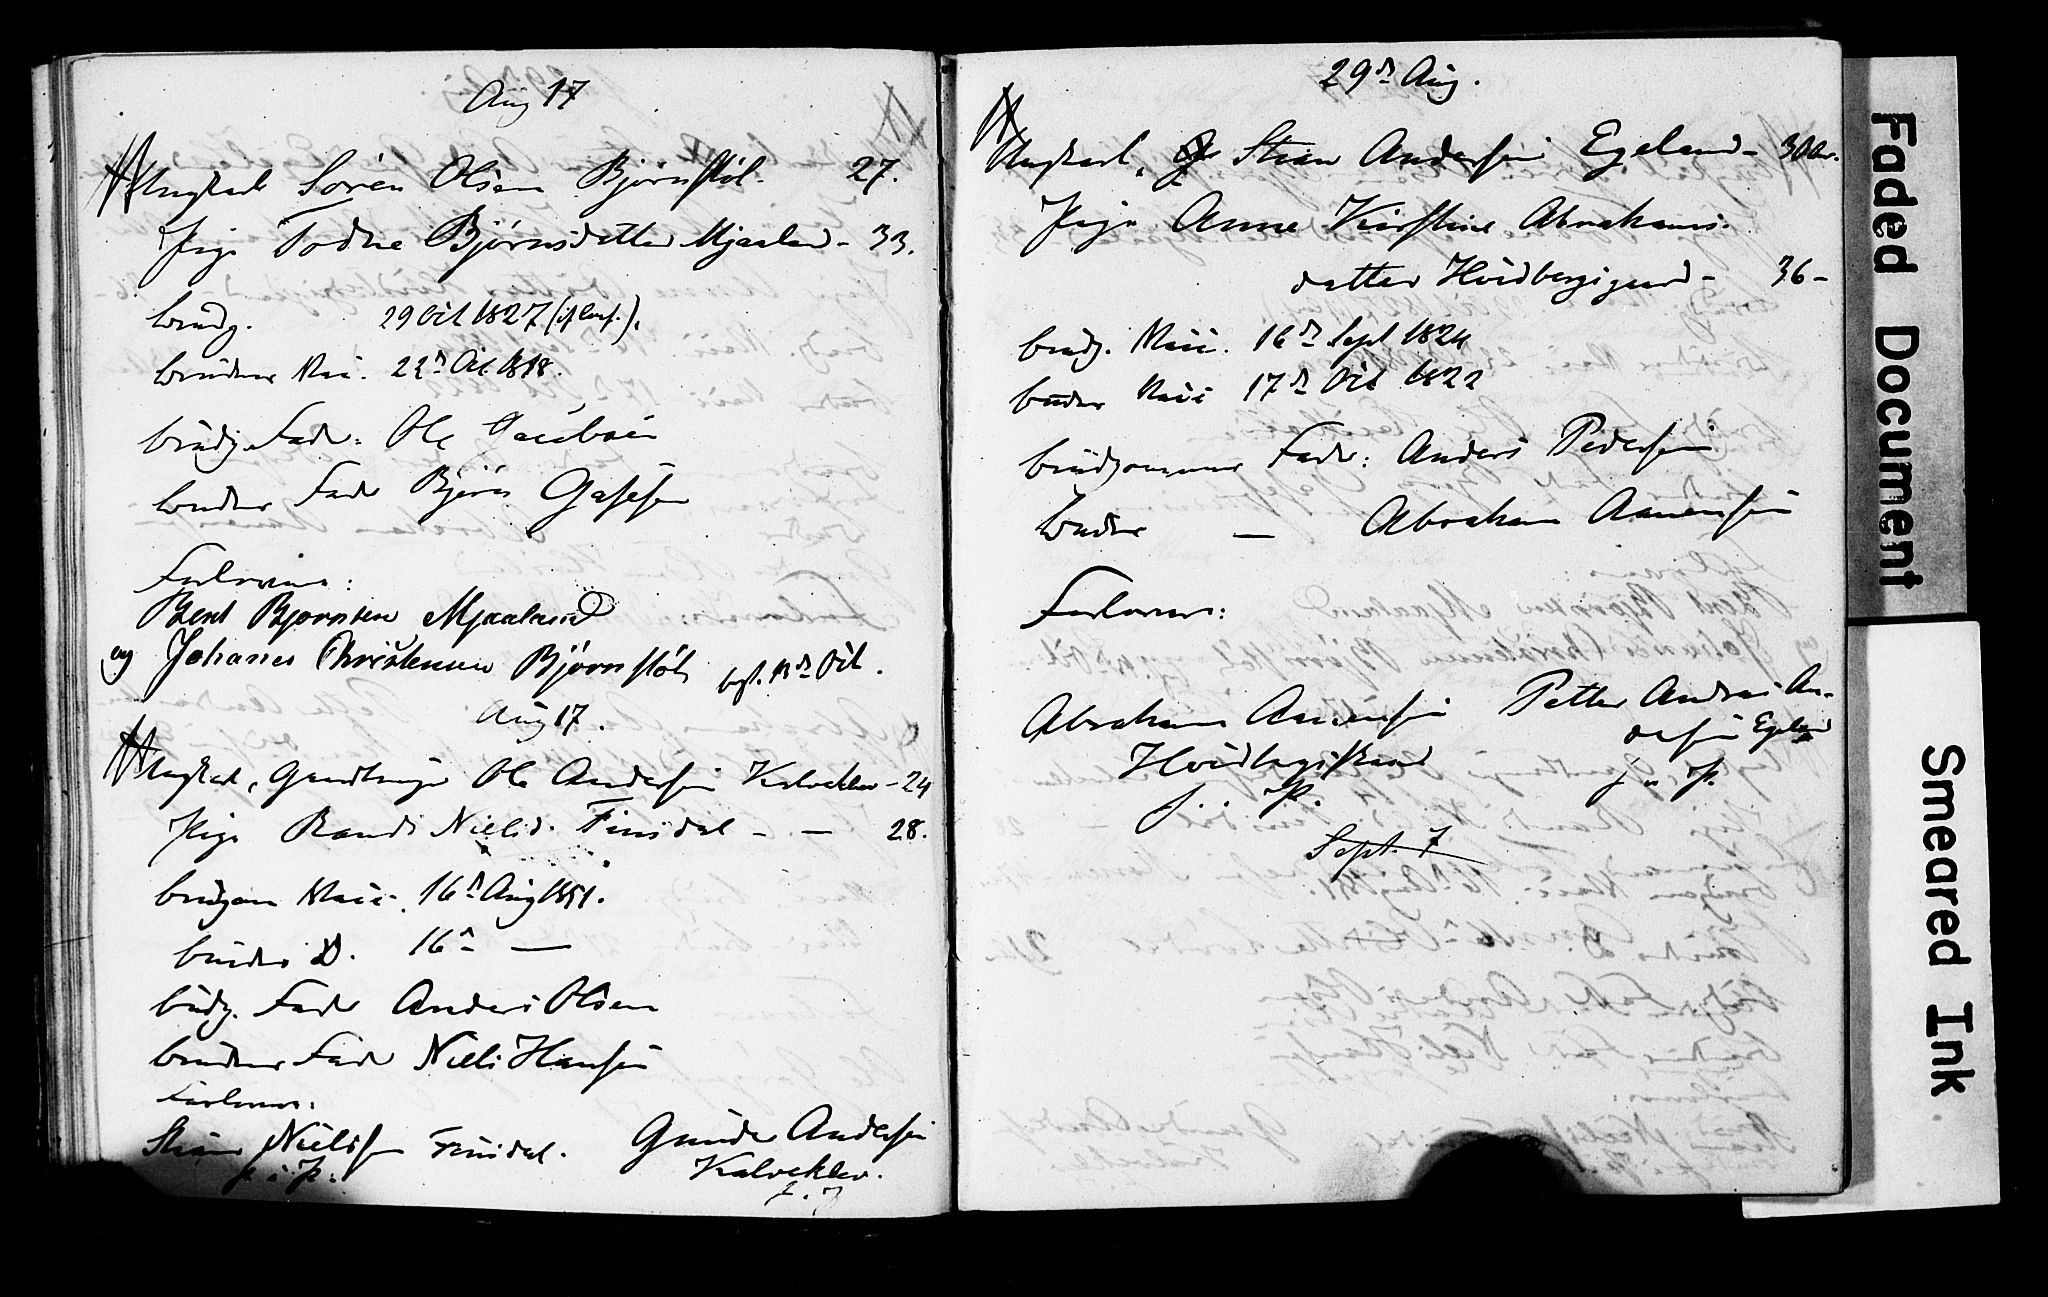 Aug 17
Ungkarl Søren Olsen Bjørnstøl. 27.
Pige Todne Bjørnsdatter Mjaaland - 33.
brudg. 29 Oct 1827
brudens Vacc. 22de Oct 1818.
brudg. Fader: Ole Jacobsen
brudens Fader Bjørn
Forlovere:
Bent Bjørnsen Mjaaland
og Johanes Christensen Bjørnstøl Oct.
Aug 17.
Ungkarl, Ole Andersen Kalvehlev - 24
Pige Randi Nielsd. Finsdal - — 28.
brudgom Vacc. 16de Aug 1851.
brudens D. 16de —
brudg. Fader Anders Olsen
brudens Fader Niels Hansen
Forlovere:
Stian Nielsen Finsdal. Gunder Andersen
Kalvehlev.
29de Aug.
Ungkarl, Stian Andersen Egeland - 30 Aar.
Pige Anne Kirstine Abrahams-
datter 36 -
brudg. Vacc. 16de Sept 1824
brudens Vacc 17de Oct 1822
brudgommens Fader: Anders Pedersen
brudens — Abraham Aanensen
Forlovere:
Abraham Aanensen Petter Andreas An-
dersen Egeland
Sept. 7
Faded Document
Smeared Ink